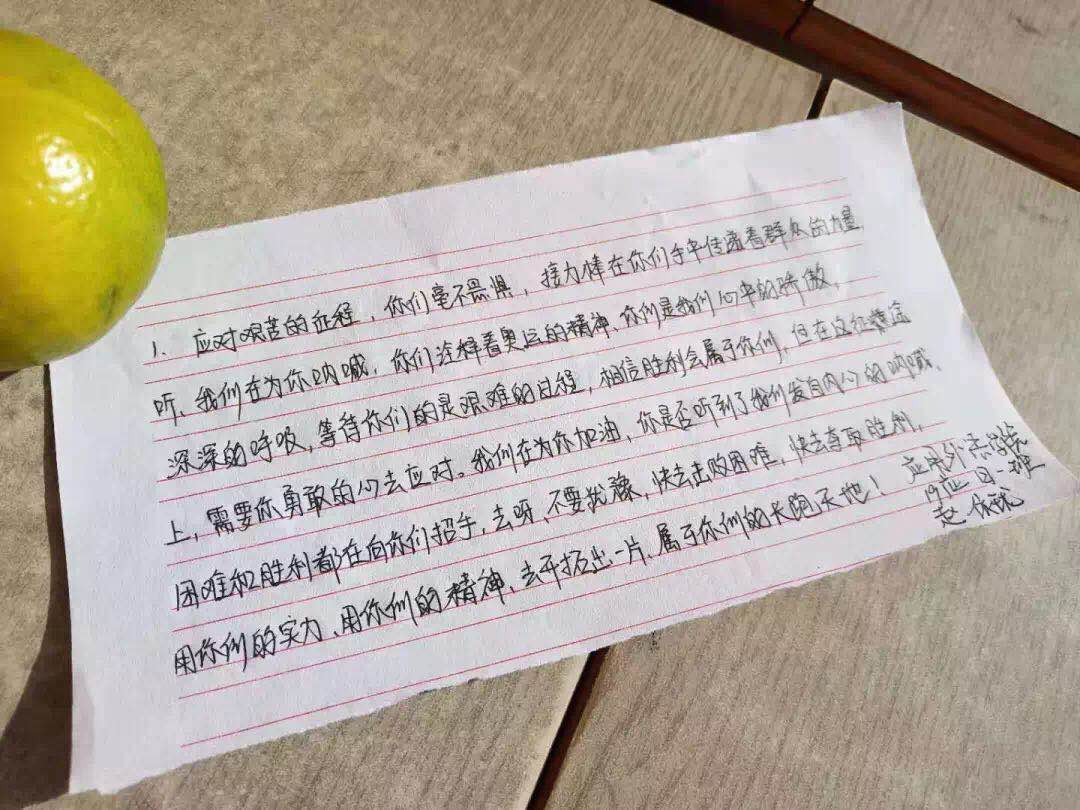 1. 应对艰苦的征程，你们毫不畏惧，接力棒在你们手中传递着群众的力量，
听、我们在为你呐喊，你们诠释着奥运的精神.你们是我们心中的骄傲，
深深的呼吸，等待你们的是艰难的旦程，相信胜利会属于你们，但在这征途
上，需要你勇敢的心去应对。我们在为你加油，你是否听到了我们发自内心的呐喊、
困难和胜利都在向你们招手，去呀、不要犹豫，快去击败困难，快去夺取胜利，
用你们的实力、用你们的精神、去开拓出一片、属于你们的长跑天地！
应用外语学院
19应日一班
赵